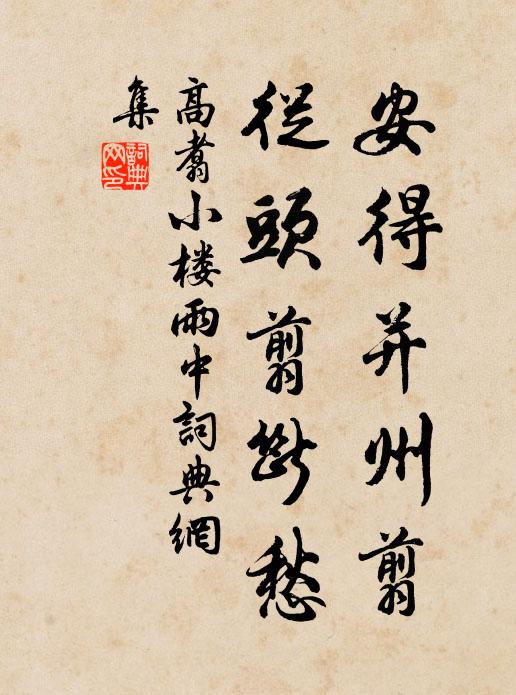 安得并州翦
從頭翦斷愁
高翥小楼雨中詞典網
集
詞典
网印